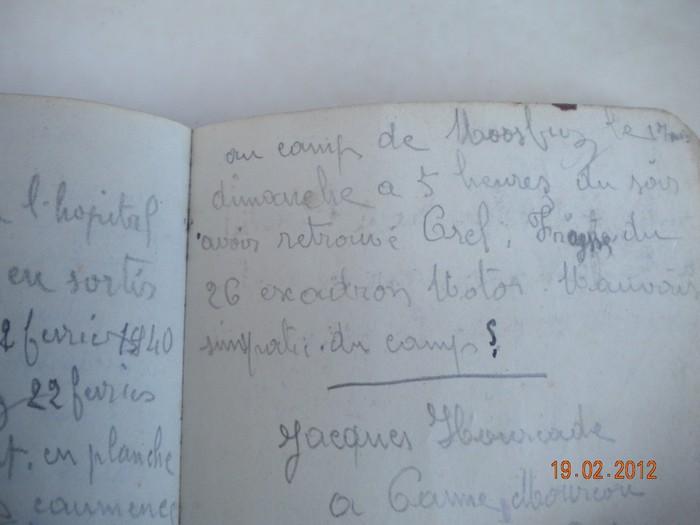 l'hopital
en sortis
2 fevrier 1940
22 fevrier
en planche
commence
au camp de Moosburg le 17
dimanche a 5 heures du soir
avoir retrouvé Orel, du
26 exadron Motor Mauvais
simpatie du camp
Jacques Hourcade
a
19.02.2012